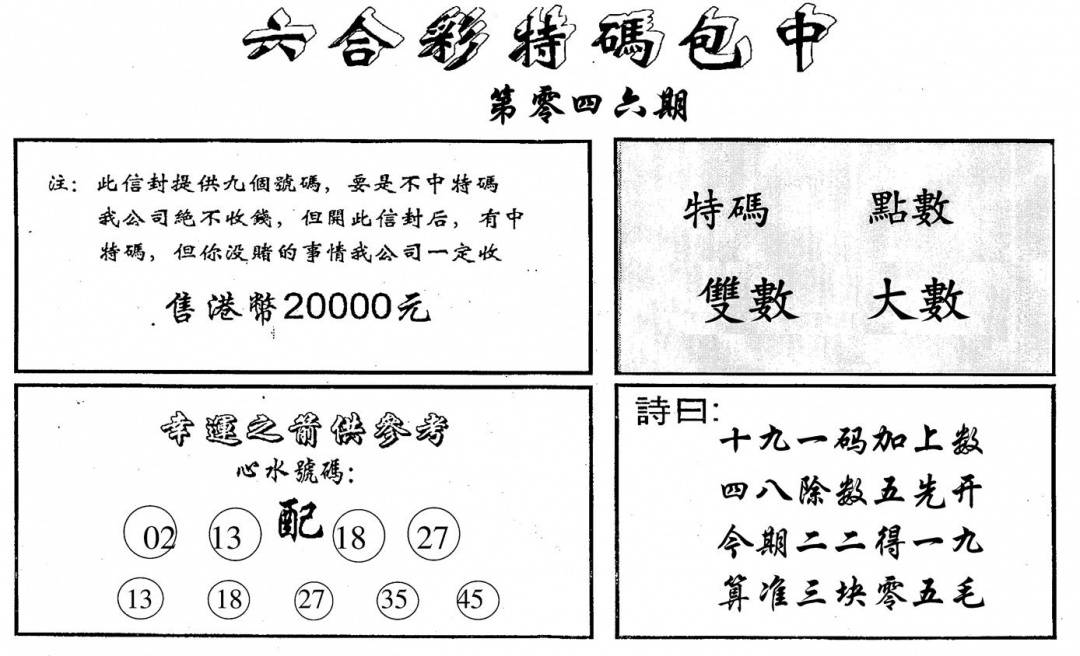 六合彩特碼包中
第零四六期
注：此信封提供九個號碼，要是不中特碼
我公司絕不收錢，但開此信封后，有中
特碼，但你没賭的事情我公司一定收
售港幣20000元
特碼 點數
雙數 大數
幸運之箭供參考
心水號碼：
配
02 13 18 27
13 18 27 35 45
詩曰：
十九一码加上数
四八除数五先开
今期二二得一九
算准三块零五毛